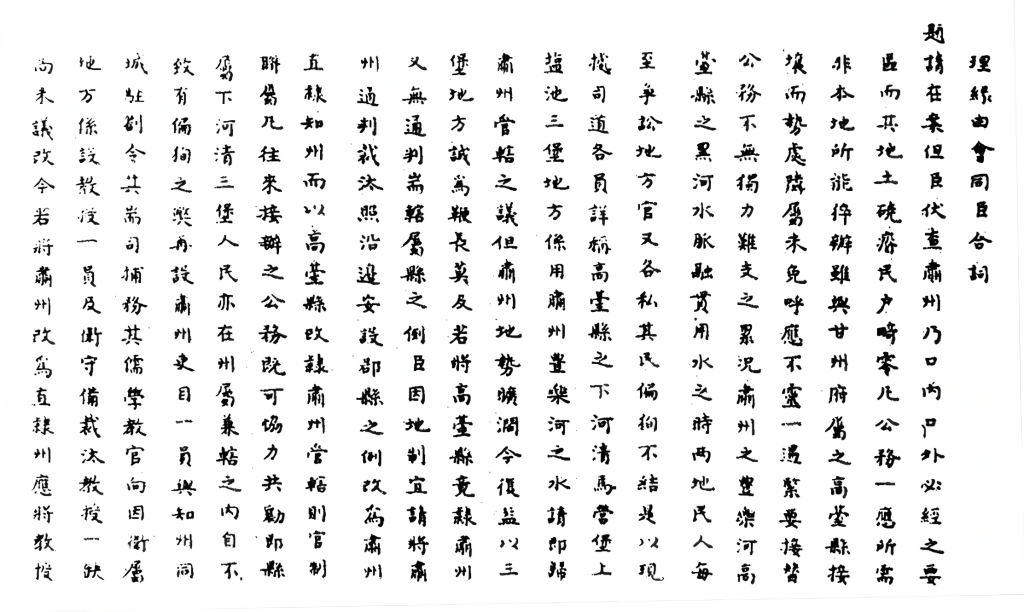 理緣由會同臣合詞
題請在案但臣伏查肅州乃口內口外必經之要
區而其地土磽瘠民戶畸零凡公務一應所需
非本地所能猝辦雖與甘州府屬之高臺縣接
壤而勢處隣屬未免呼應不靈一遇緊要接替
公務不無獨力難支之累況肅州之豐樂河高
臺縣之黑河水脈融貫用水之時兩地民人每
至爭訟地方官又各私其民偏狥不結是以現
據司道各員詳稱高臺縣之下河清馬營堡上
塩池三堡地方係用肅州豐樂河之水請即歸
肅州管轄之議但肅州地勢曠濶今復益以三
堡地方誠爲鞭長莫及若將高臺縣竟隸肅州
又無通判耑轄屬縣之例臣因地制宜請將肅
州通判裁汰照沿邊安設郡縣之例改爲肅州
直隸知州而以高臺縣改隸肅州管轄則官制
聯屬凡往來接辦之公務既可協力共勷即縣
屬下河清三堡人民亦在州屬兼轄之內自不
致有偏狥之弊再設肅州吏目一員與知州同
城駐劄令其耑司捕務其儒學教官向因衛屬
地方係設教授一員及衛守備裁汰教授一缺
尚未議改今若將肅州改爲直隸州應將教授